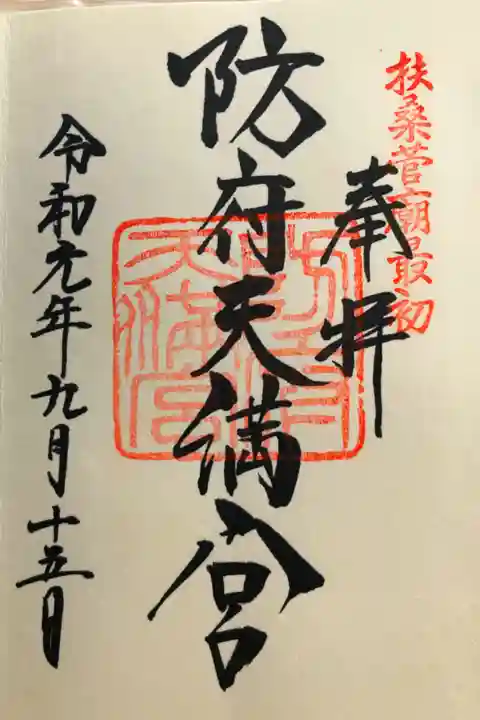 扶桑菅廟最初
奉拝
防府天満宮
令和元年九月十五日
防府天満宮